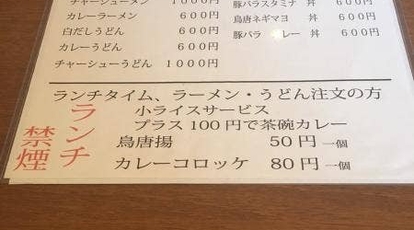 チャーシューメン 1000円
カレーラーメン 600円
白だしうどん 600円
カレーうどん 600円
チャーシューうどん 1000円
豚バラスタミナ 丼 600円
鳥唐ネギマヨ 丼 600円
豚バラ レー 丼 600円
ランチタイム、ラーメン・うどん注文の方
小ライスサービス
プラス100円で茶碗カレー
鳥唐揚 50円一個
カレーコロッケ 80円一個
ランチ
禁煙